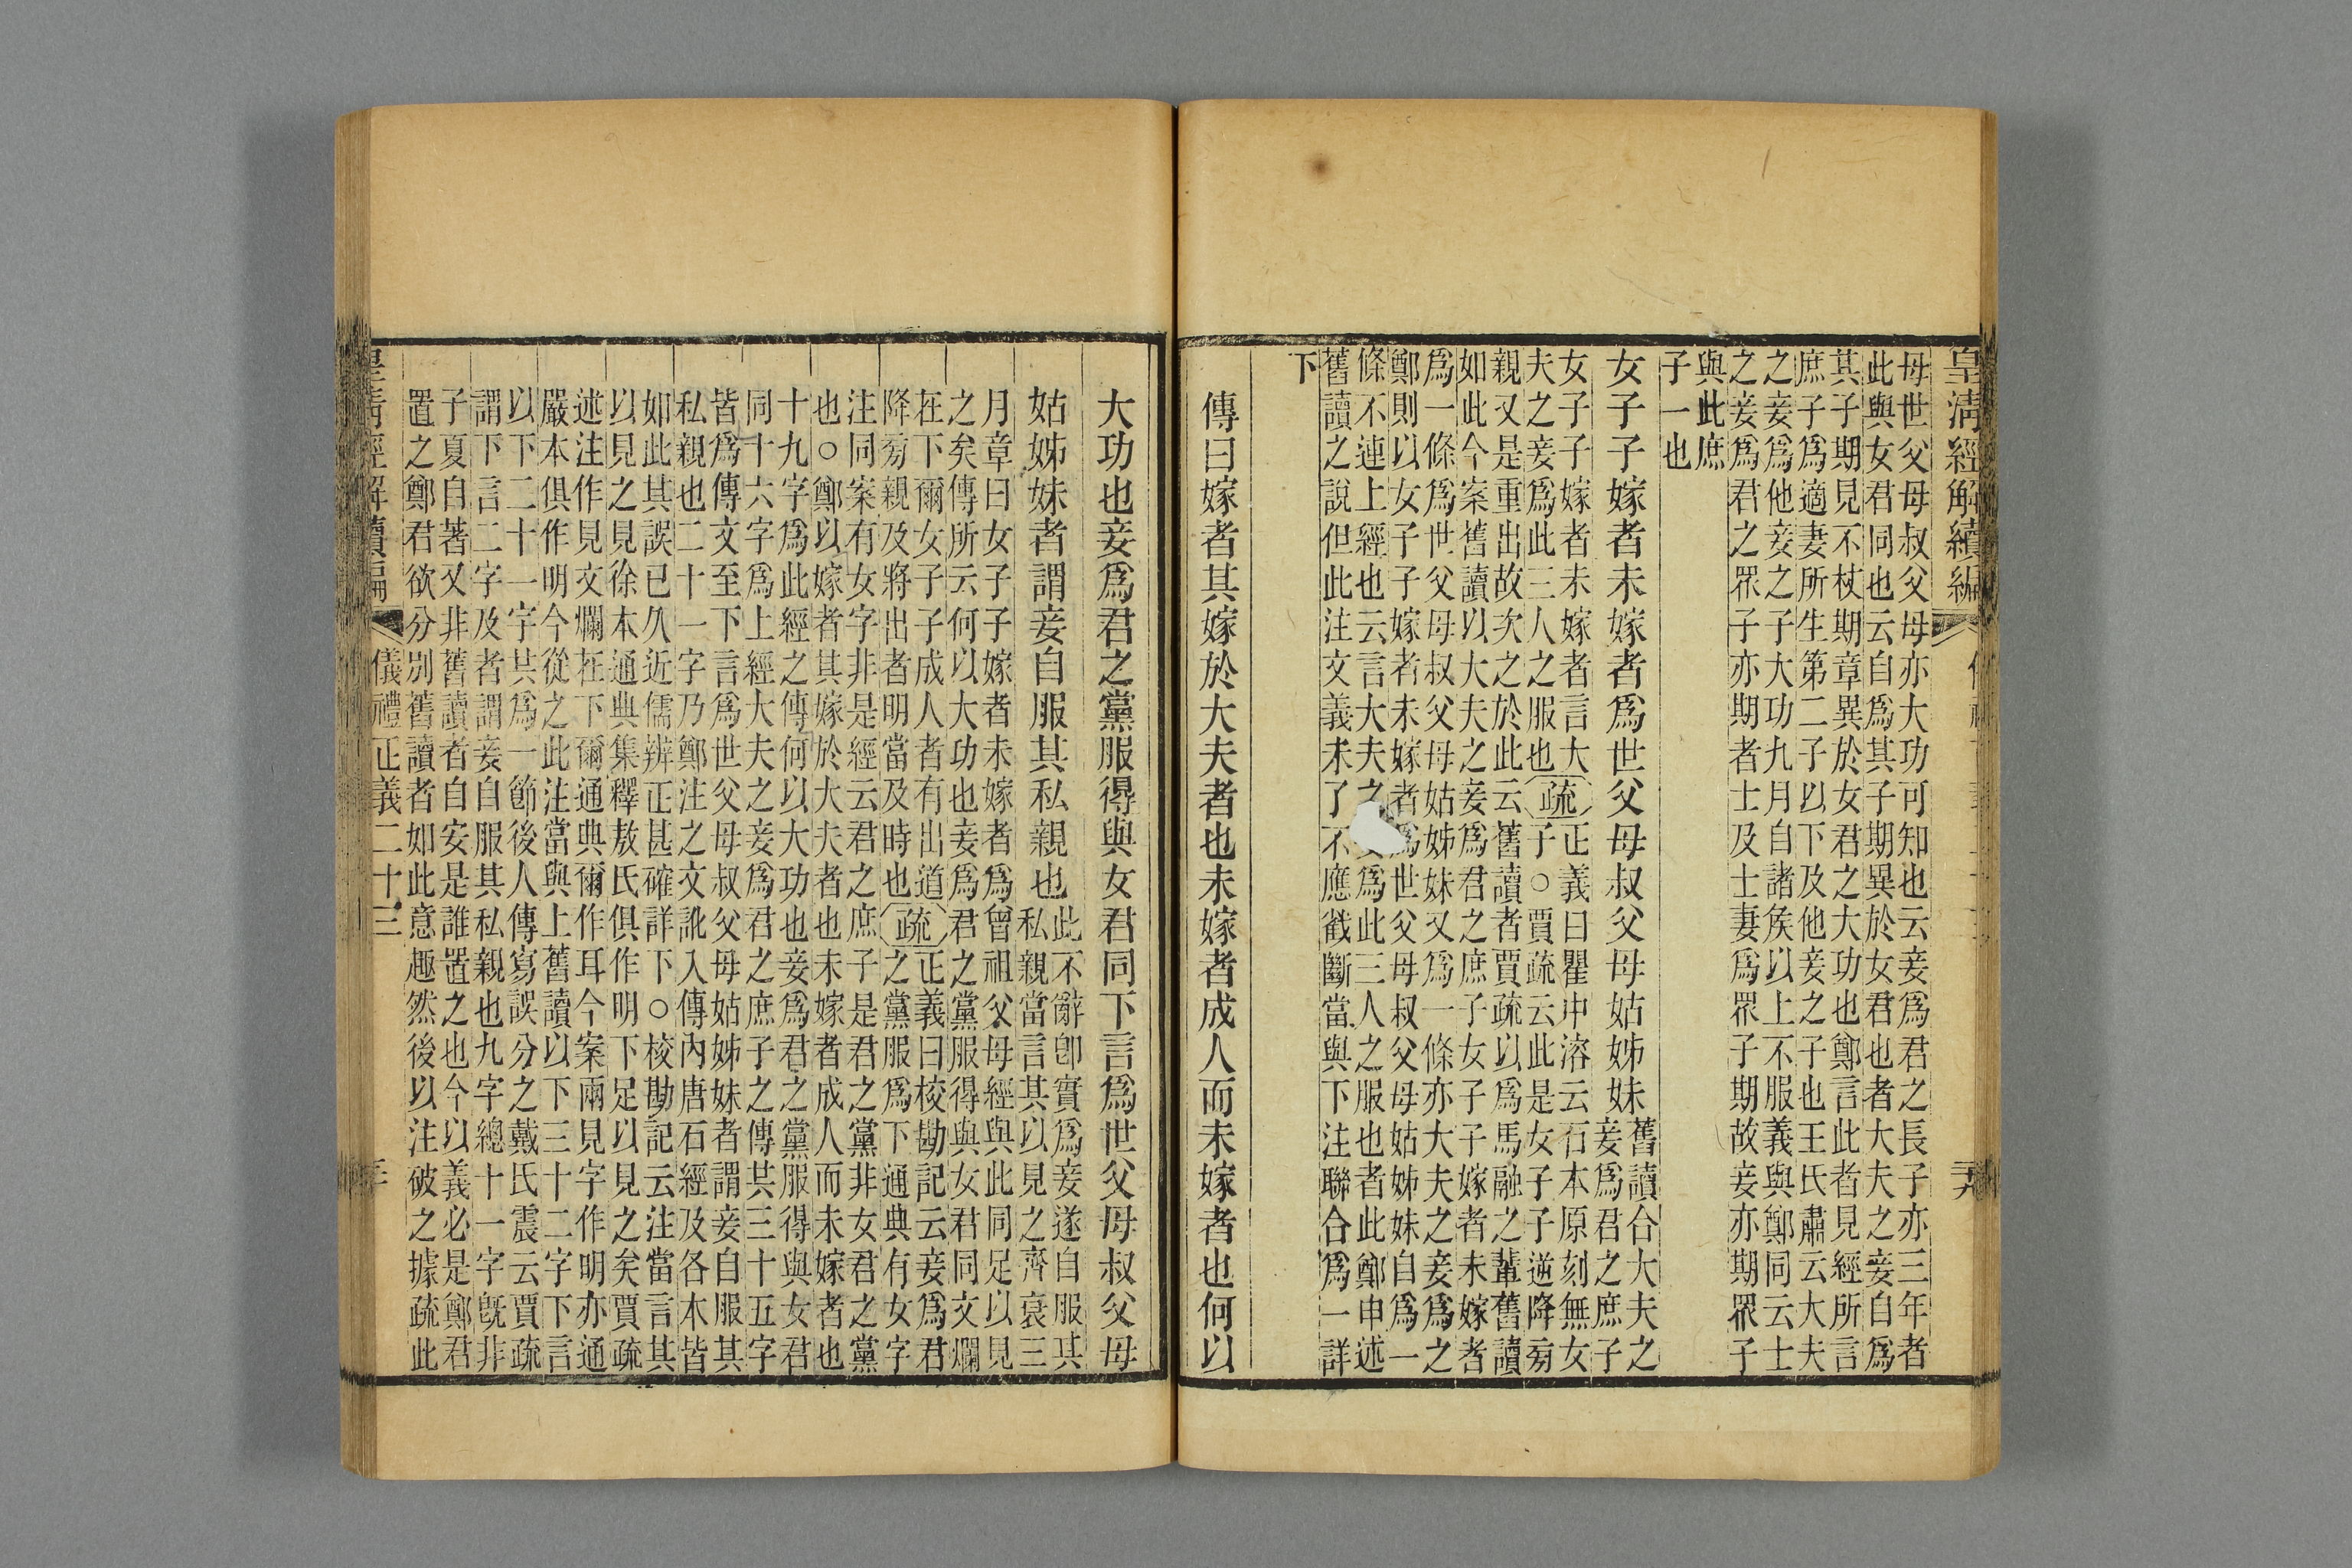 皇清經解續編
母世父母叔父母亦大功可知也云妾爲君之長子亦三年者
此與女君同也云自爲其子期異於女君也者大夫之妾自爲
其子期見不杖期章異於女君之大功也鄭言此者見經所言
庶子爲適妻所生第二子以下及他妾之子也王氏肅云大夫
之妾爲他妾之子大功九月自諸矦以上不服義與鄭同云士
之妾爲君之眾子亦期者士及士妻爲眾子期故妾亦期眾子
與此庶
子一也
女子子嫁者未嫁者爲世父母叔父母姑姊妹
舊讀合大夫之
妾爲君之庶子
女子子嫁者未嫁者言大
夫之妾爲此三人之服也
疏
正義曰瞿中溶云石本原刻無女
子○賈疏云此是女子子逆降㫄
親又是重出故次之於此云舊讀者賈疏以爲馬融之輩舊讀
如此今案舊讀以大夫之妾爲君之庶子女子子嫁者未嫁者
爲一條爲世父母叔父母姑姊妹又爲一條亦大夫之妾爲之
鄭則以女子子嫁者未嫁者爲世父母叔父母姑姊妹自爲一
條不連上經也云言大夫之妾爲此三人之服也者此鄭申述
舊讀之說但此注文義未了不應截斷當與下注聯合爲一詳
下
傳曰嫁者其嫁於大夫者也未嫁者成人而未嫁者也何以
大功也妾爲君之黨服得與女君同下言爲世父母叔父母
姑姊妹者謂妾自服其私親也
此不辭卽實爲妾遂自服其
私親當言其以見之齊衰三
月章曰女子子嫁者未嫁者爲曾祖父母經與此同足以見
之矣傳所云何以大功也妾爲君之黨服得與女君同文爛
在下爾女子子成人者有出道
降㫄親及將出者明當及時也
疏
正義曰校勘記云妾爲君
之黨服爲下通典有女字
注同案有女字非是經云君之庶子是君之黨非女君之黨
也○鄭以嫁者其嫁於大夫者也未嫁者成人而未嫁者也
十九字爲此經之傳何以大功也妾爲君之黨服得與女君
同十六字爲上經大夫之妾爲君之庶子之傳其三十五字
皆爲傳文至下言爲世父母叔父母姑姊妹者謂妾自服其
私親也二十一字乃鄭注之文訛入傳內唐石經及各本皆
如此其誤已久近儒辨正甚確詳下○校勘記云注當言其
以見之見徐本通典集釋敖氏俱作明下足以見之矣賈疏
述注作見文爛在下爾通典爾作耳今案兩見字作明亦通
嚴本俱作明今從之此注當與上舊讀以下三十二字下言
以下二十一字共爲一節後人傳寫誤分之戴氏震云賈疏
謂下言二字及者謂妾自服其私親也九字總十一字旣非
子夏自著又非舊讀者自安是誰置之也今以義必是鄭君
置之鄭君欲分別舊讀者如此意趣然後以注破之據疏此
皇清經解續編
儀禮正義二十三